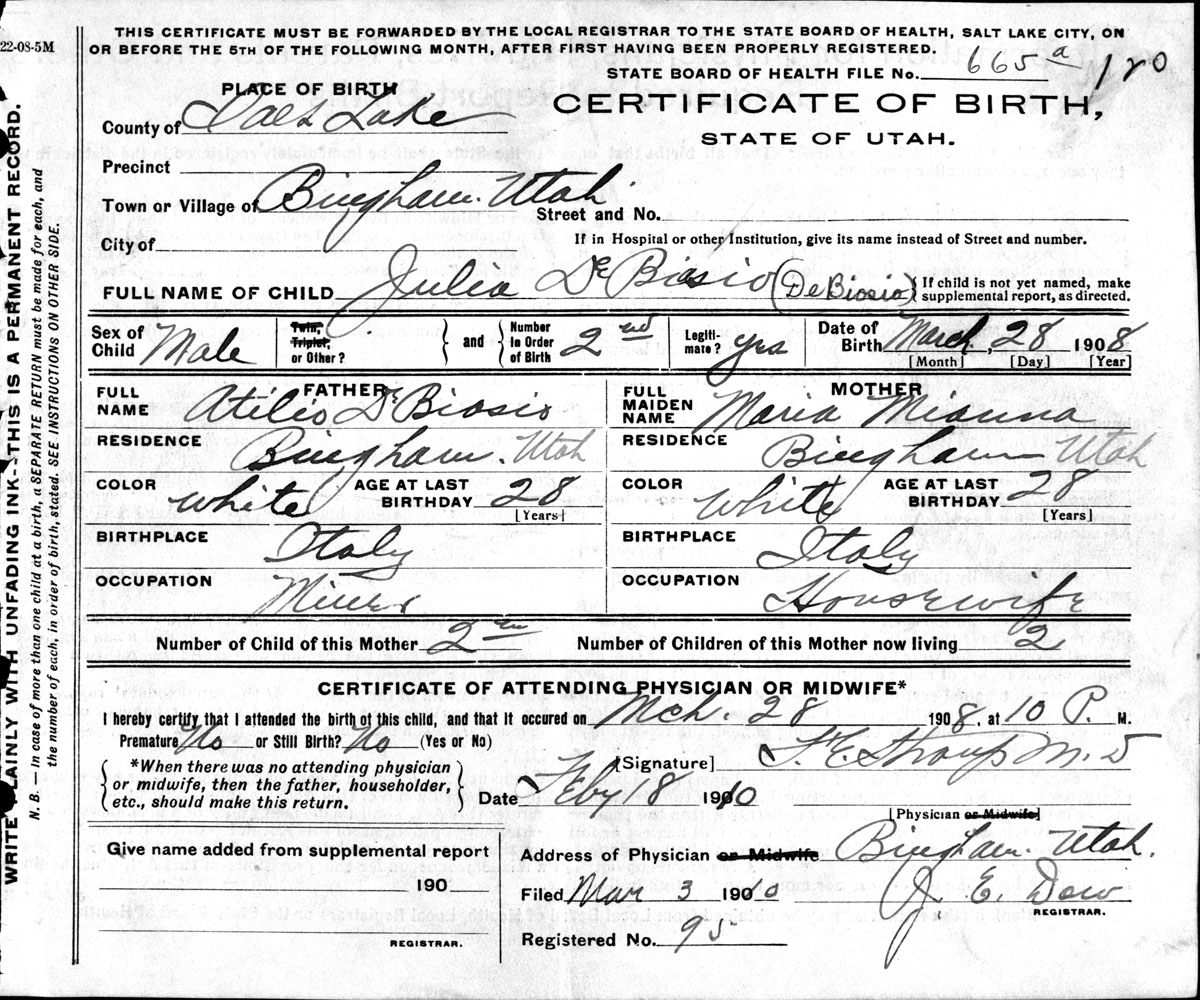 22-08-5M
THIS CERTIFICATE MUST BE FORWARDED BY THE LOCAL REGISTRAR TO THE STATE BOARD OF HEALTH, SALT LAKE CITY, ON
OR BEFORE THE 5TH OF THE FOLLOWING MONTH, AFTER FIRST HAVING BEEN PROPERLY REGISTERED.
STATE BOARD OF HEALTH FILE No. 665 a 120
PLACE OF BIRTH
CERTIFICATE OF BIRTH,
STATE OF UTAH.
County of Salt Lake
Precinct
Town or Village of Bingham. Utah
Street and No.
City of
If in Hospital or other Institution, give its name instead of Street and number.
FULL NAME OF CHILD Julio De Biasio (De Biosio) If child is not yet named, make supplemental report, as directed.
Sex of Child Male Twin, Triplet, or Other? and Number in Order of Birth 2nd Legitimate? yes Date of Birth March, 28 1908
[Month] [Day] [Year]
FATHER
FULL NAME Atilio De Biosio
RESIDENCE Bingham. Utah
COLOR White AGE AT LAST BIRTHDAY 28
[Years]
BIRTHPLACE Italy
OCCUPATION Miner
MOTHER
FULL MAIDEN NAME Maria Mianna
RESIDENCE Bingham Utah
COLOR White AGE AT LAST BIRTHDAY 28
[Years]
BIRTHPLACE Italy
OCCUPATION Housewife
Number of Child of this Mother 2nd Number of Children of this Mother now living 2
CERTIFICATE OF ATTENDING PHYSICIAN OR MIDWIFE*
I hereby certify that I attended the birth of this child, and that it occured on Mch. 28 1908, at 10 P. M.
Premature? No or Still Birth? No (Yes or No)
*When there was no attending physician
or midwife, then the father, householder,
etc., should make this return.
[Signature] F. E. Straup M. D
Date Feby 18 1910
[Physician or Midwife]
Address of Physician or Midwife Bingham. Utah.
Filed Mar 3 1910 J. E. Dow
REGISTRAR.
Registered No. 95
Give name added from supplemental report
190
REGISTRAR.
WRITE PLAINLY WITH UNFADING INK--THIS IS A PERMANENT RECORD.
N. B. — In case of more than one child at a birth, a SEPARATE RETURN must be made for each, and
the number of each, in order of birth, stated. SEE INSTRUCTIONS ON OTHER SIDE.